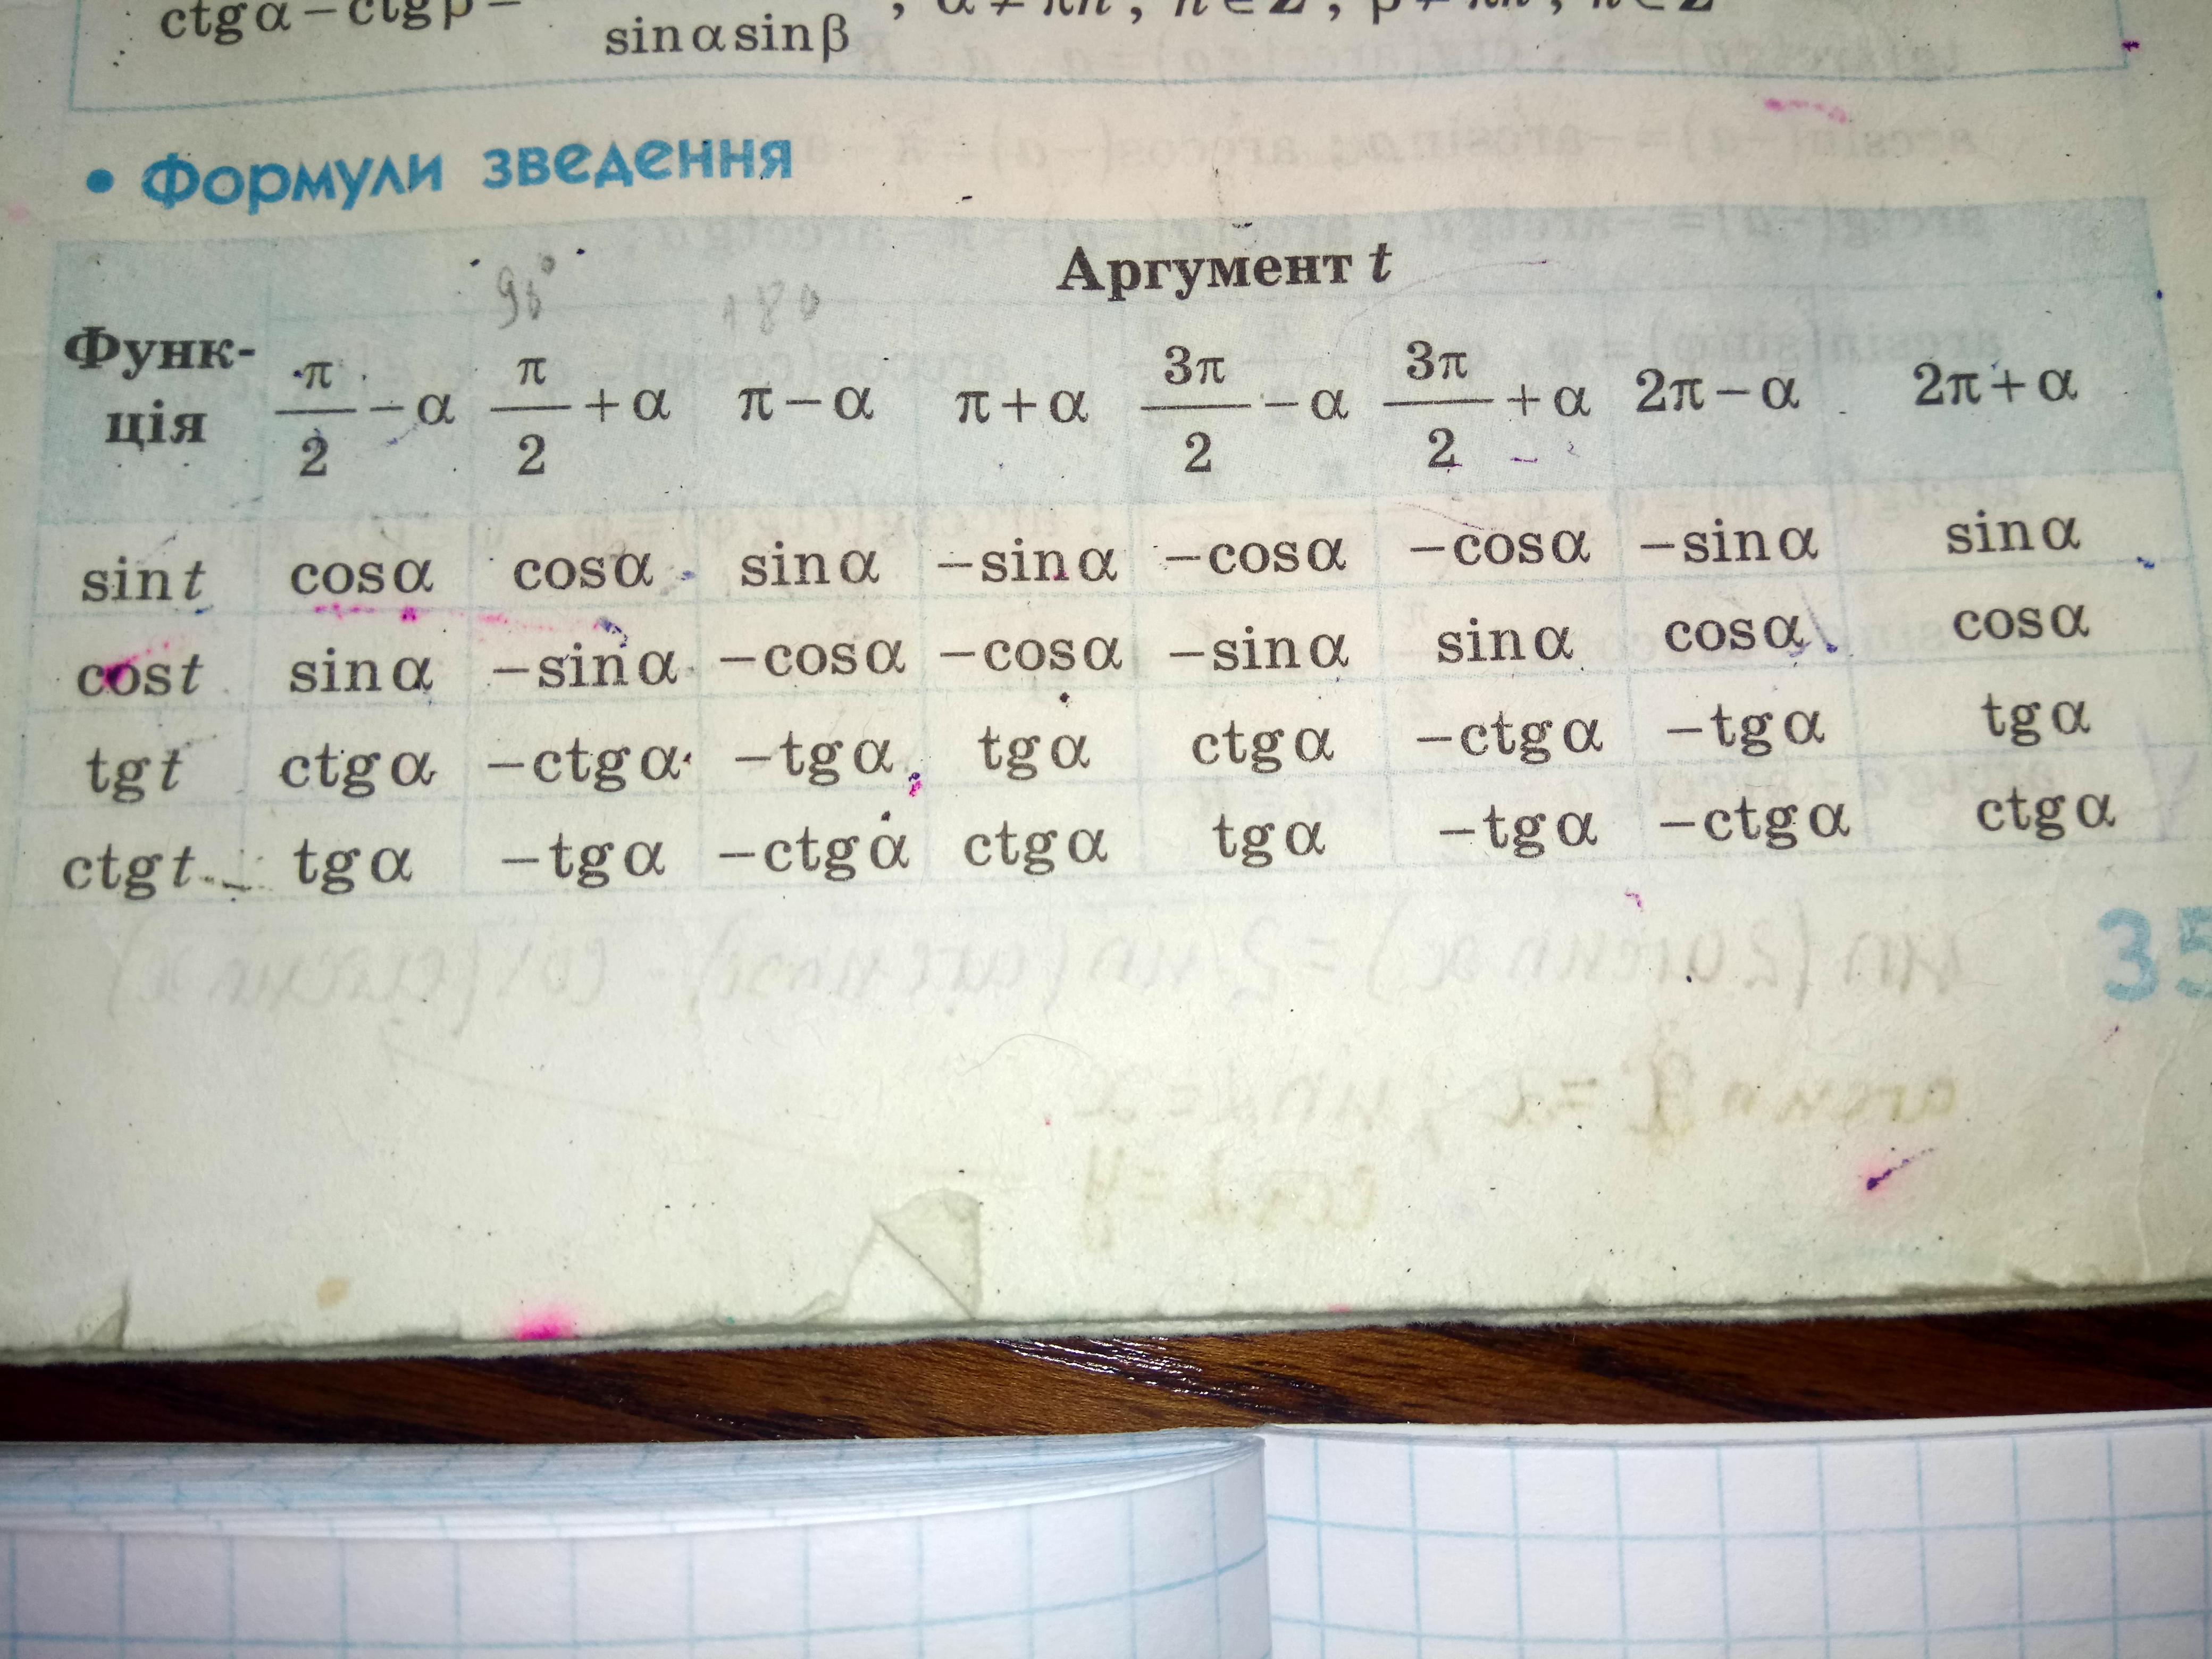 ctgα−ctgβ=
sinαsinβ
, α≠πn, n∈Z, β≠πn, n∈Z
• Формули зведення
Функ-
ція
Аргумент t
90° 180
π/2−α π/2+α π−α π+α 3π/2−α 3π/2+α 2π−α 2π+α
sint cosα cosα sinα −sinα −cosα −cosα −sinα sinα
cost sinα −sinα −cosα −cosα −sinα sinα cosα cosα
tgt ctgα −ctgα −tgα tgα ctgα −ctgα −tgα tgα
ctgt tgα −tgα −ctgα ctgα tgα −tgα −ctgα ctgα
35